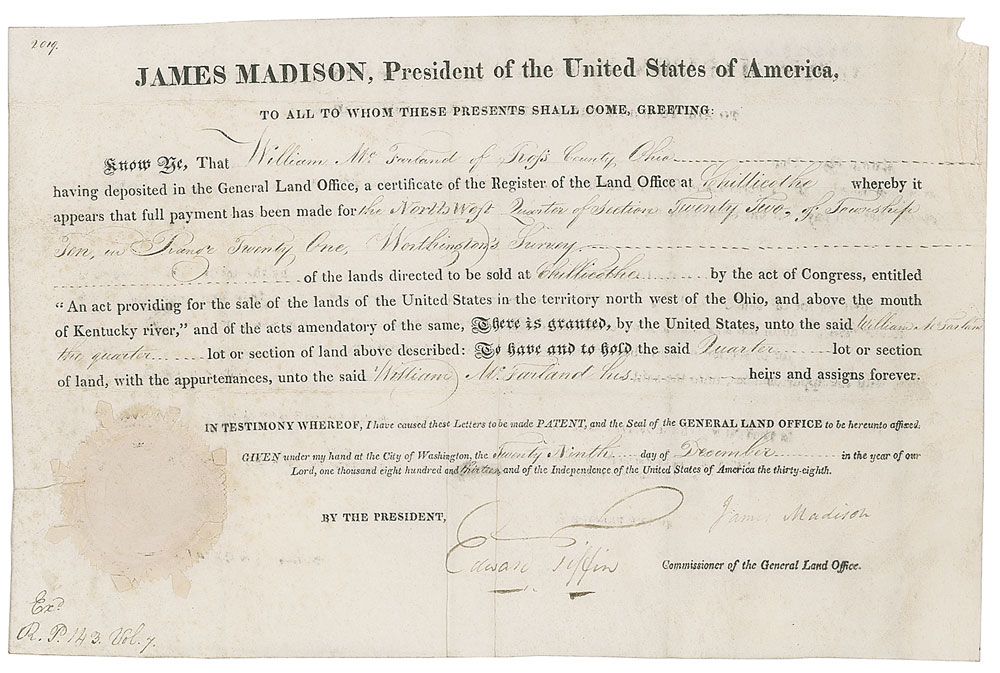 2019.
JAMES MADISON, President of the United States of America,
TO ALL TO WHOM THESE PRESENTS SHALL COME, GREETING:
Know Ye, That William Mc Farland of Ross County Ohio
having deposited in the General Land Office, a certificate of the Register of the Land Office at Chillicothe whereby it
appears that full payment has been made for the North West Quarter of Section Twenty Two, of Township
Ten, in Range Twenty One, Worthington's Survey
of the lands directed to be sold at Chillicothe by the act of Congress, entitled
"An act providing for the sale of the lands of the United States in the territory north west of the Ohio, and above the mouth
of Kentucky river," and of the acts amendatory of the same, There is granted, by the United States, unto the said William Mc Farland
the quarter lot or section of land above described: To have and to hold the said Quarter lot or section
of land, with the appurtenances, unto the said William Mc Farland his heirs and assigns forever.
IN TESTIMONY WHEREOF, I have caused these Letters to be made PATENT, and the Seal of the GENERAL LAND OFFICE to be hereunto affixed.
GIVEN under my hand at the City of Washington, the Twenty Ninth day of December in the year of our
Lord, one thousand eight hundred and thirteen and of the Independence of the United States of America the thirty-eighth.
BY THE PRESIDENT,
James Madison
Edward Tiffin Commissioner of the General Land Office.
Exd
R. P. 143. Vol. 7.